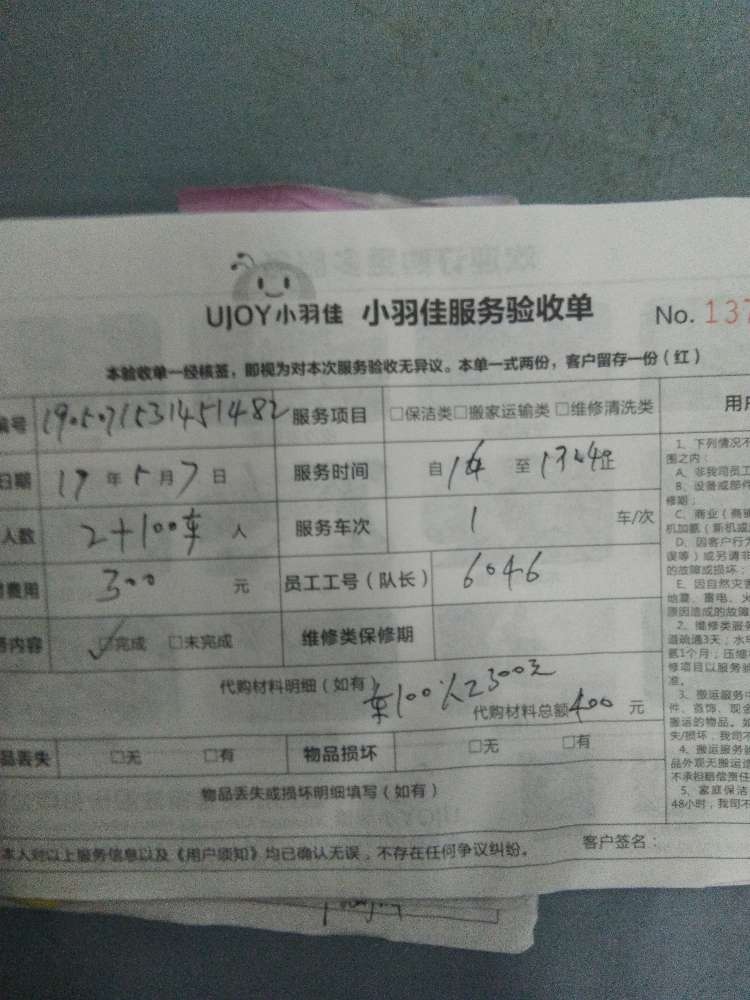 UJOY小羽佳 小羽佳服务验收单 No. 137
本验收单一经核签，即视为对本次服务验收无异议。本单一式两份，客户留存一份（红）
编号 1905071531451482 服务项目 □保洁类□搬家运输类□维修清洗类
日期 19年5月7日 服务时间 自 至
人数 2+100车 人 服务车次 1 车/次
费用 300 元 员工工号（队长） 6046
务内容 □完成 □未完成 维修类保修期
代购材料明细（如有） 车100 人2 300元
代购材料总额 400 元
品丢失 □无 □有 物品损坏 □无 □有
物品丢失或损坏明细填写（如有）
本人对以上服务信息以及《用户须知》均已确认无误，不存在任何争议纠纷。 客户签名：
用户
1、下列情况不
围之内：
A、非我司员工
B、设备或部件
修期；
C、商业（商铺
机加氨（新机或
D、因客户行为
误等）或另请非
的故障或损坏；
E、因自然灾害
地震、雷电、火
原因造成的故障
2、维修类服务
道疏通3天；水电
氨1个月；压缩
修项目以服务验
准。
3、搬运服务中
件、首饰、现金
搬运的物品。如
失/损坏，我司不
4、搬运服务验
品外观无搬运造
不承担赔偿责任
5、家庭保洁
48小时，我司不